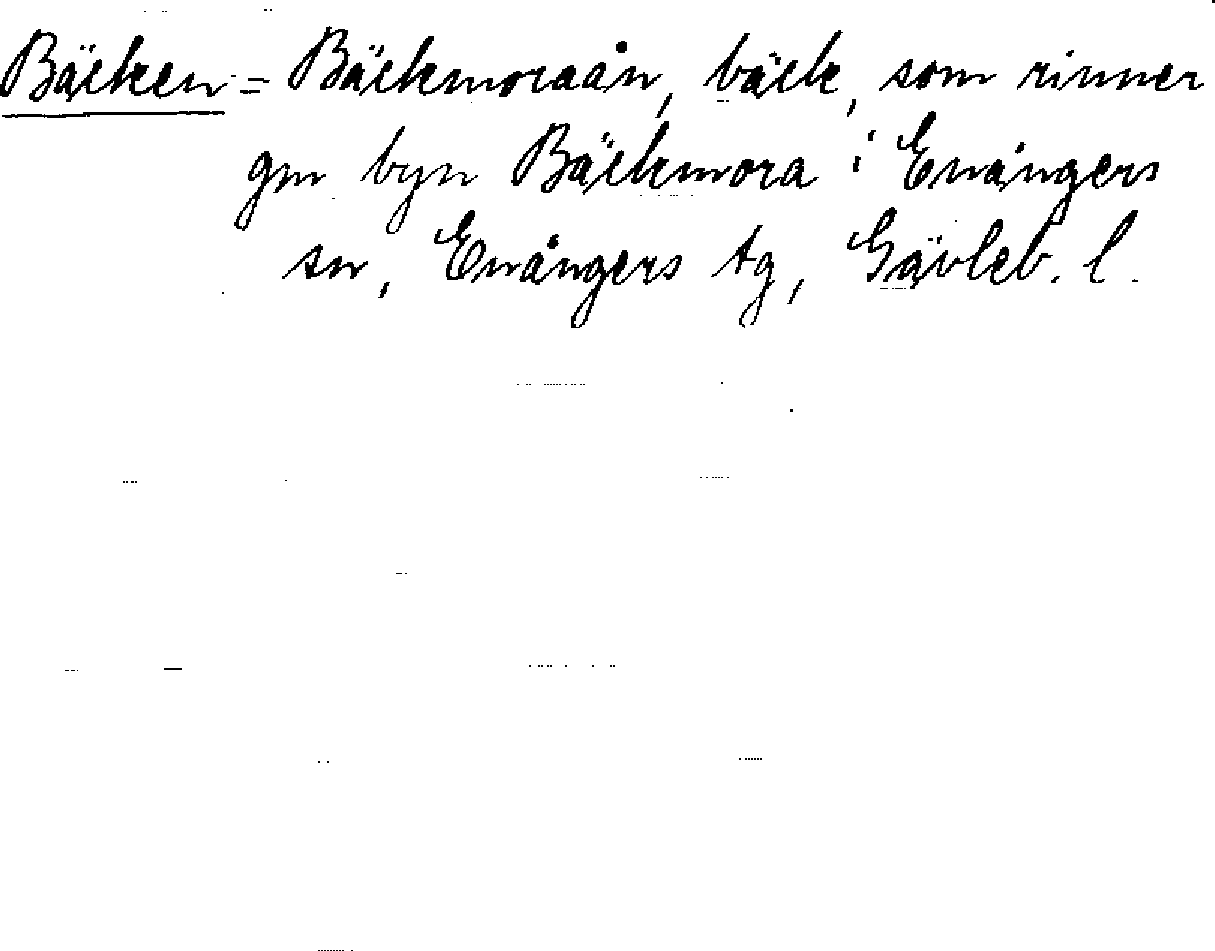 Bäcken = Bäckmoraån, bäck, som rinner
gm byn Bäckmora i Enångers
sn, Enångers tg, Gävleb. l.